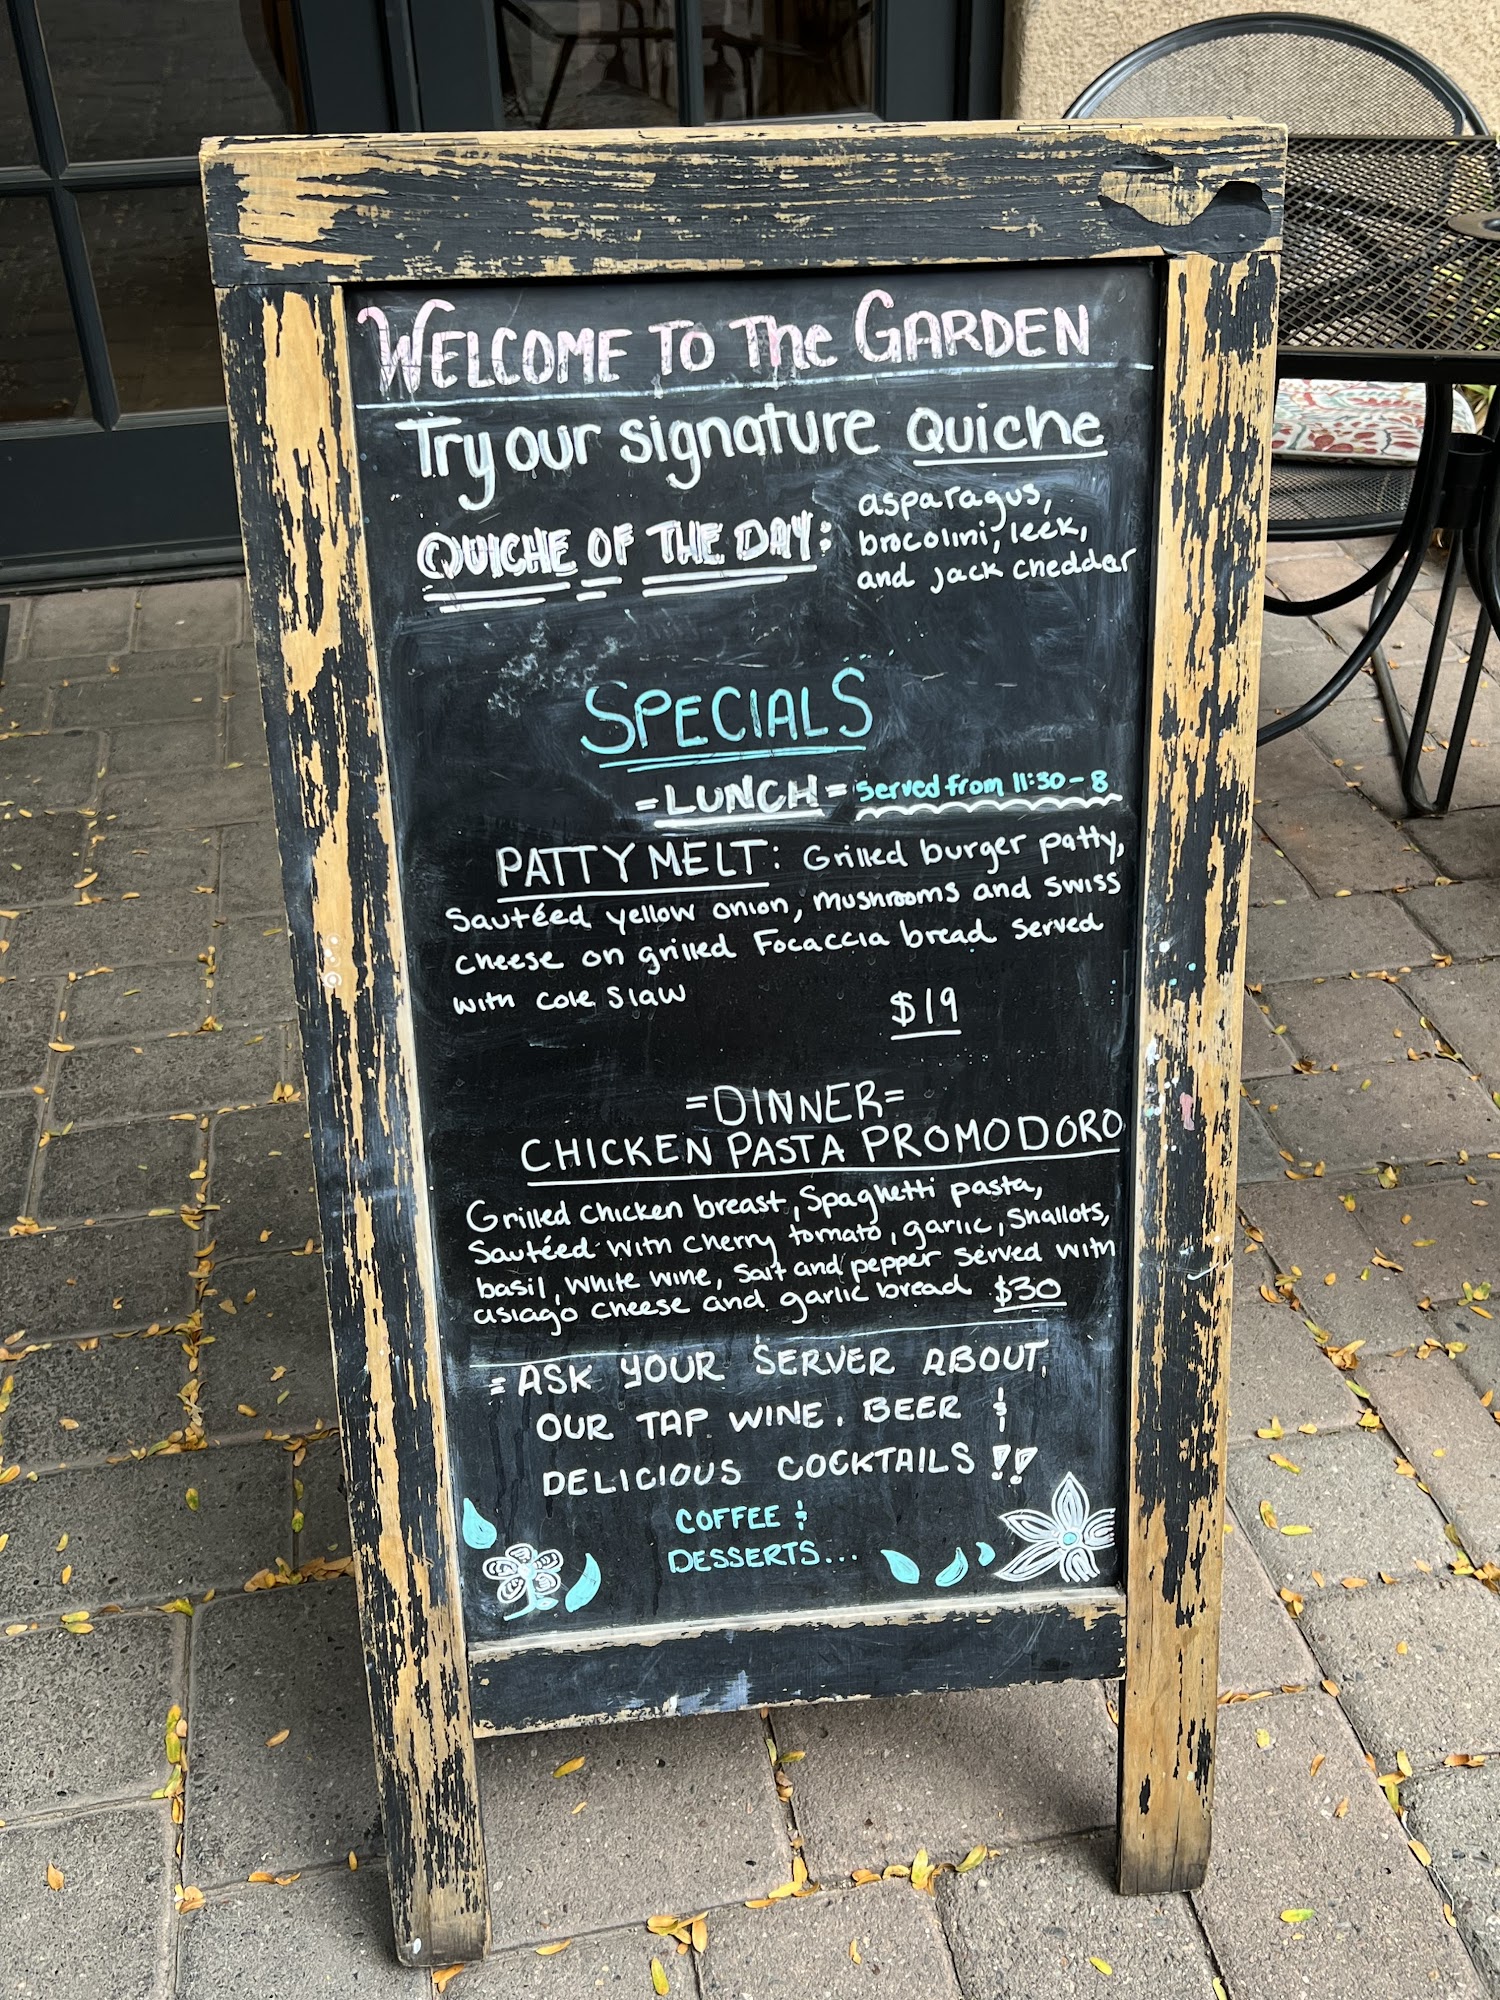 WELCOME TO The GARDEN
Try our signature Quiche
QUICHE OF THE DAY:
asparagus,
brocolini, leek,
and jack cheddar
SPECIALS
=LUNCH= Served from 11:30-8
PATTY MELT: Grilled burger patty,
Sautéed yellow onion, mushrooms and swiss
cheese on grilled Focaccia bread served
with cole slaw
$19
=DINNER=
CHICKEN PASTA PROMODORO
Grilled chicken breast, Spaghetti pasta,
Sautéed with cherry tomato, garlic, Shallots,
basil, white wine, salt and pepper served with
asiago cheese and garlic bread $30
=ASK YOUR SERVER ABOUT
OUR TAP WINE, BEER &
DELICIOUS COCKTAILS !!
COFFEE &
DESSERTS...